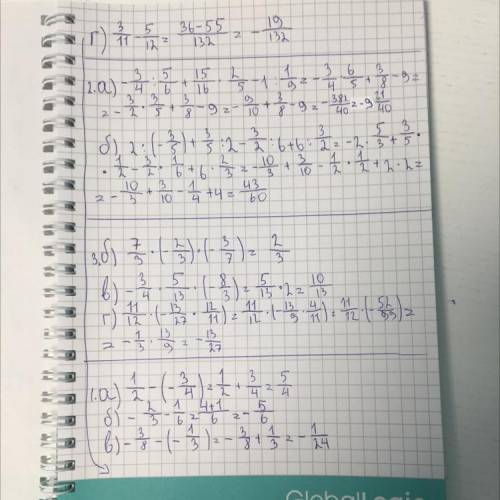 г) 3/11 - 5/12 = (36-55)/132 = - 19/132
2.а) - 3/4 : 5/6 + 15/16 · 2/5 - 1 : 1/9 = - 3/4 · 6/5 + 3/8 - 9 =
= - 3/2 · 3/5 + 3/8 - 9 = - 9/10 + 3/8 - 9 = - 381/40 = -9 21/40
б) 2 : (- 3/5) + 3/5 : 2 - 3/2 : 6 + 6 : 3/2 = -2 · 5/3 + 3/5 ·
· 1/2 - 3/2 · 1/6 + 6 · 2/3 = - 10/3 + 3/10 - 1/2 · 1/2 + 2 · 2 =
= - 10/3 + 3/10 - 1/4 + 4 = 43/60
3.б) 7/3 · (- 2/3) · (- 3/7) = 2/3
в) - 3/4 · 5/13 · (- 8/3) = 5/13 · 2 = 10/13
г) 11/12 · (- 13/27 · 12/11) = 11/12 · (- 13/9 · 4/11) = 11/12 · (- 52/99) =
= - 1/3 · 13/9 = - 13/27
1.а) 1/2 - (- 3/4) = 1/2 + 3/4 = 5/4
б) - 2/3 - 1/6 = - (4+1)/6 = - 5/6
в) - 3/8 - (- 1/3) = - 3/8 + 1/3 = - 1/24
GlobalLogic